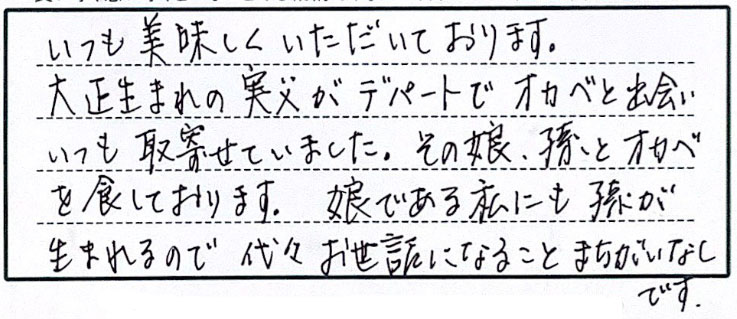 いつも美味しくいただいております。
大正生まれの実父がデパートでオカベと出会い
いつも取寄せていました。その娘、孫とオカベ
を食しております。娘である私にも孫が
生まれるので代々お世話になることまちがいなし
です.